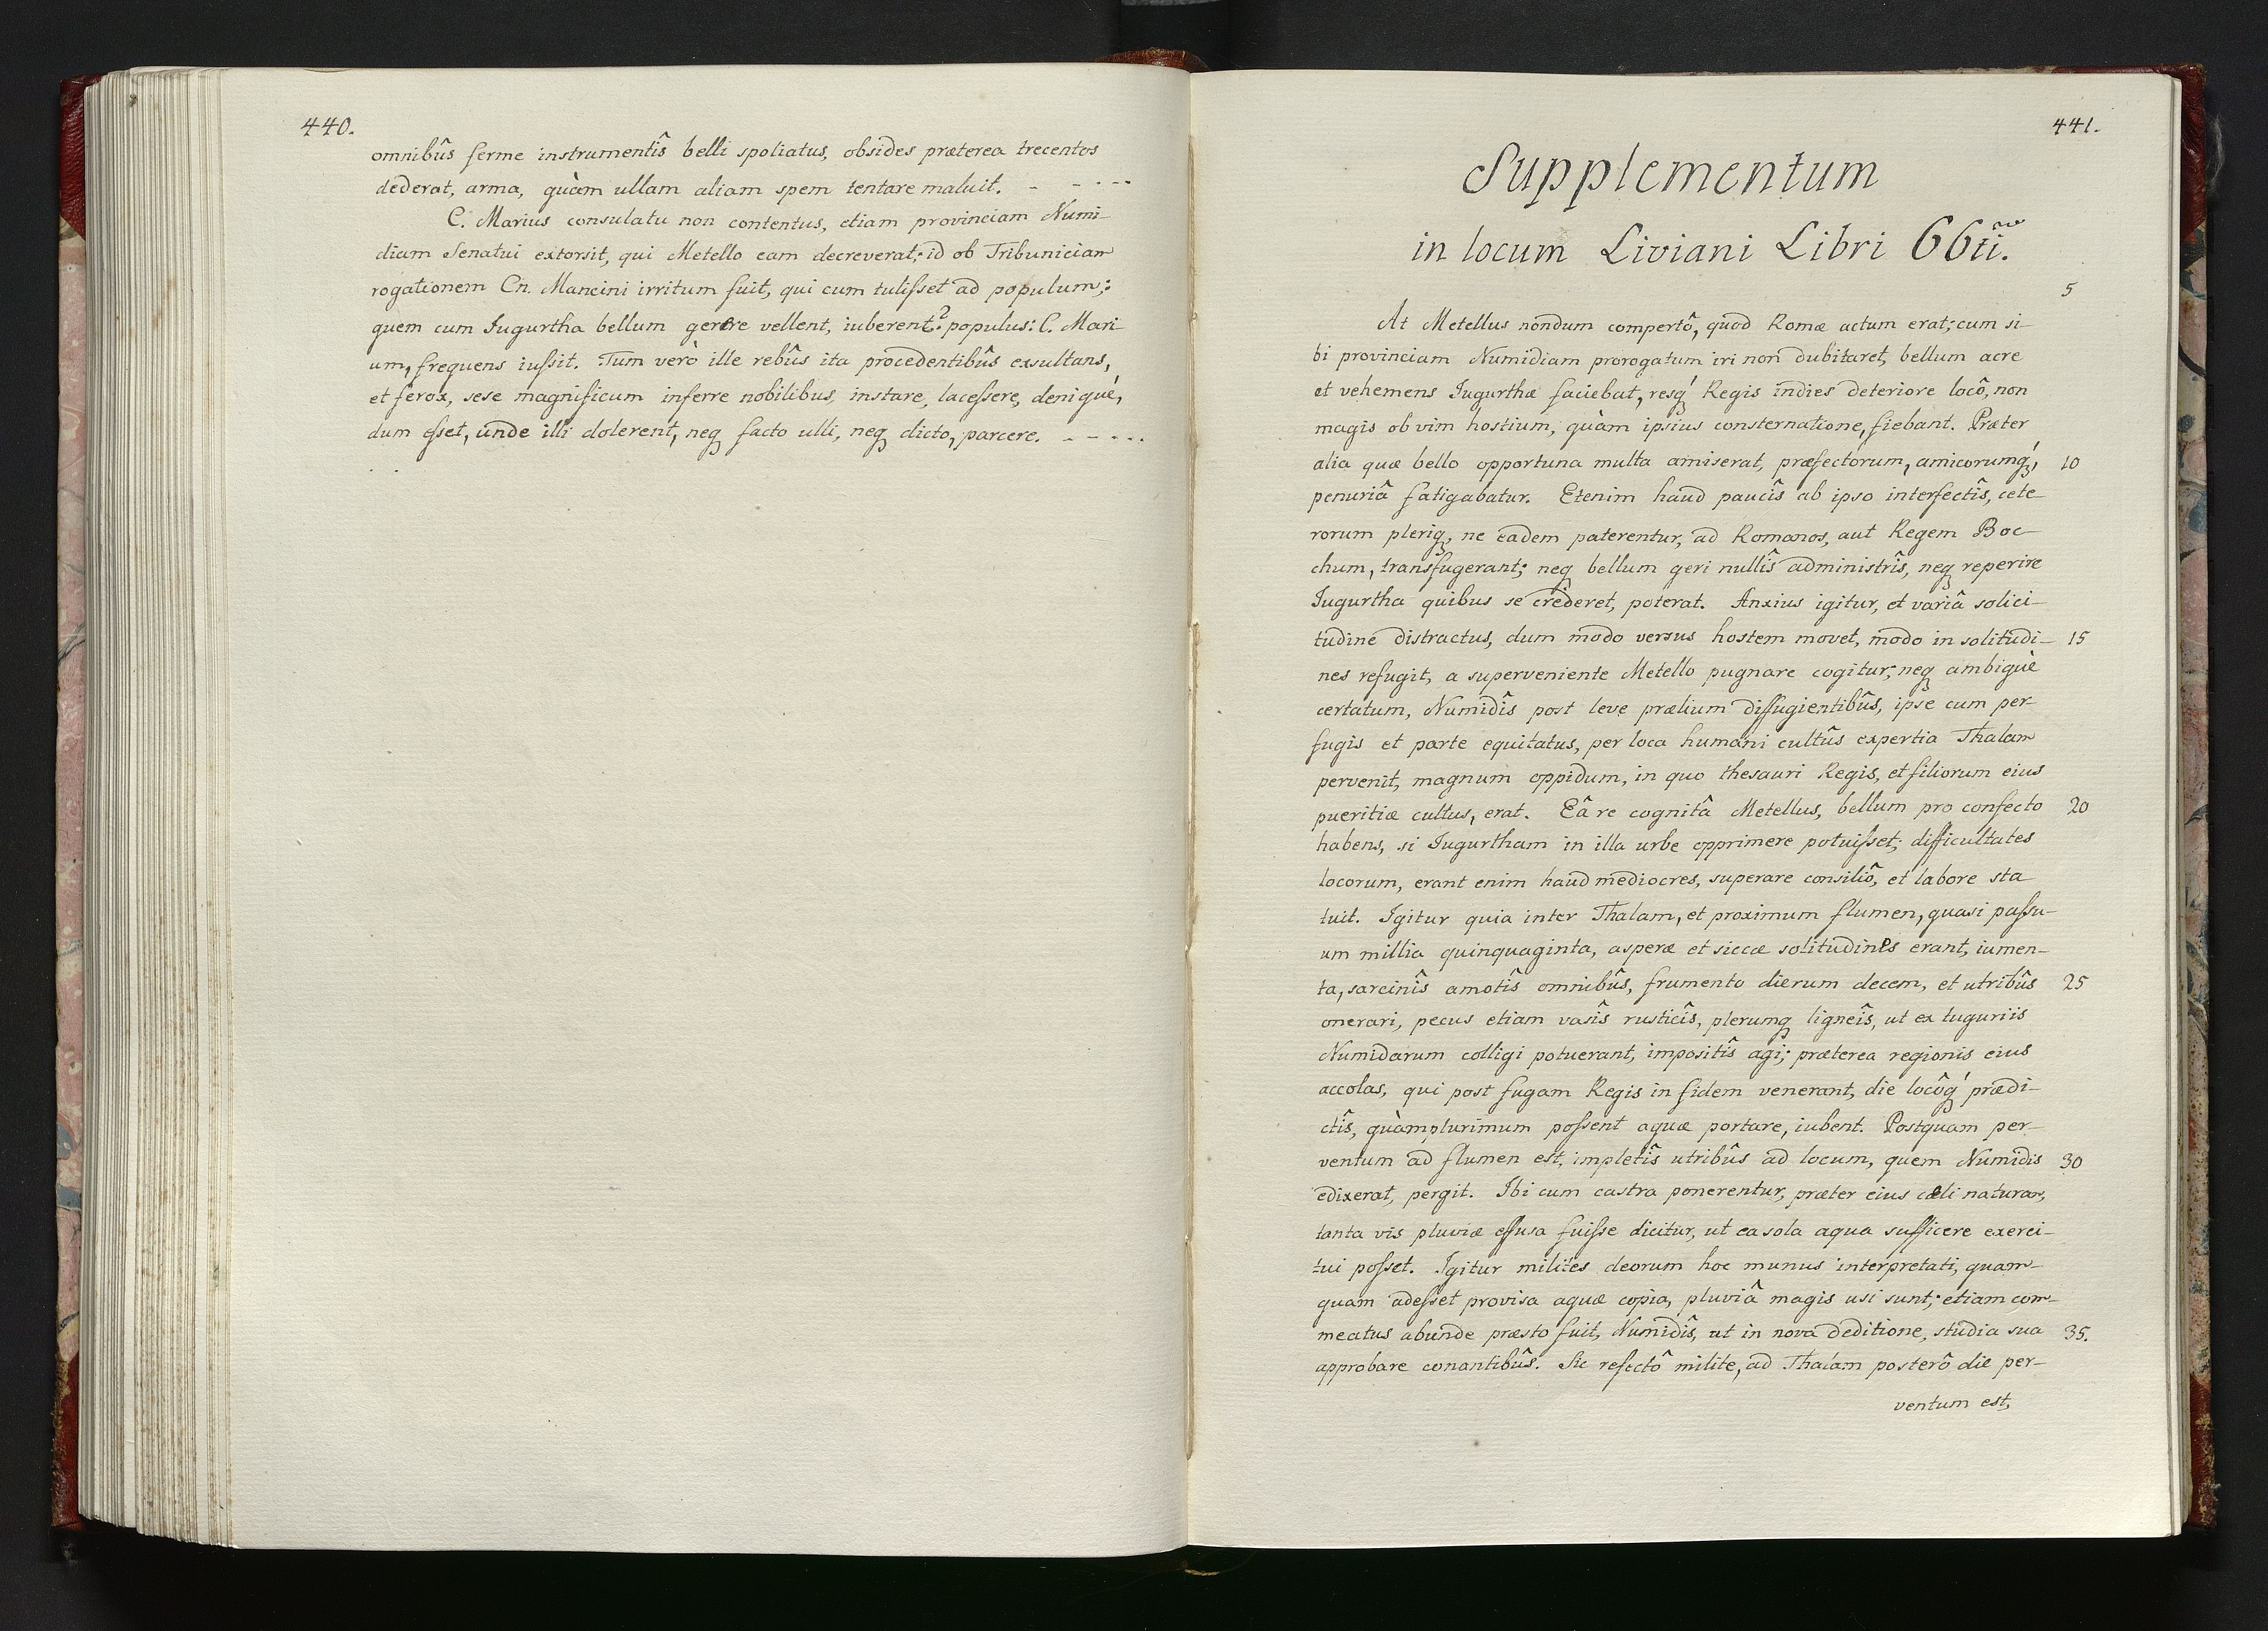 440.
omnibûs ferme instrumentîs belli spoliatus, obsides præterea trecentos
dederat, arma, quàm ullam aliam spem tentare maluit. - - . - -
C. Marius consulatu non contentus, etiam provinciam Numi-
diam Senatui extorsit, qui Metello eam decreverat; id ob Tribuniciam
rogationem Cn. Mancini irritum fuit, qui cum tulisset ad populum;:
quem cum Iugurtha bellum gerere vellent, iuberent? populus: C. Mari-
um, frequens iussit. Tum verò ille rebûs ita procedentibûs exsultans,
et ferox, sese magnificum inferre nobilibus, instare, lacessere, denique,
dum esset, unde illi dolerent, neq facto ulli, neq dicto, parcere. - - - . .
. .
441.
Supplementum
in locum Liviani Libri 66ti.
5
At Metellus nondum compertô, quod Romæ actum erat; cum si-
bi provinciam Numidiam prorogatum iri non dubitaret, bellum acre
et vehemens Iugurthæ faciebat, resq́ Regis indies deteriore locô, non
magis ob vim hostium, quàm ipsius consternatione, fiebant. Præter
alia quæ bello opportuna multa amiserat, præfectorum, amicorumq́, 10
penuriâ fatigabatur. Etenim haud paucîs ab ipso interfectîs, cete-
rorum pleriq, ne eadem paterentur, ad Romanos, aut Regem Boc-
chum, transfugerant; neq bellum geri nullîs administrîs, neq reperire
Iugurtha quibus se crederet, poterat. Anxius igitur, et variâ solici-
tudine distractus, dum modo versus hostem movet, modo in solitudi- 15
nes refugit, a superveniente Metello pugnare cogitur; neq ambiguè
certatum, Numidîs post leve prælium diffugientibûs, ipse cum per-
fugis et parte equitatus, per loca humani cultûs expertia Thalam
pervenit, magnum oppidum, in quo thesauri Regis, et filiorum eius
pueritiæ cultus, erat. Eâ re cognitâ Metellus, bellum pro confecto 20
habens, si Iugurtham in illa urbe opprimere potuisset; difficultates
locorum, erant enim haud mediocres, superare consiliô, et labore sta
tuit. Igitur quia inter Thalam, et proximum flumen, quasi passu-
um millia quinquaginta, asperæ et siccæ solitudines erant, iumen-
ta, sarcinîs amotîs omnibûs, frumento dierum decem, et utribûs 25
onerari, pecus etiam vasîs rusticîs, plerumq ligneîs, ut ex tuguriis
Numidarum colligi potuerant, impositîs agi; præterea regionis eius
accolas, qui post fugam Regis in fidem venerant, die locôq́ prædi-
ctîs, quàmplurimum possent aquæ portare, iubent. Postquam per-
ventum ad flumen est, impletîs utribûs ad locum, quem Numidis 30
edixerat, pergit. Ibi cum castra ponerentur, præter eius cæli naturam,
tanta vis pluviæ effusa fuisse dicitur, ut ea sola aqua sufficere exerci-
tui posset. Igitur milites deorum hoc munus interpretati, quam-
quam adesset provisa aquæ copia, pluviâ magis usi sunt; etiam com-
meatus abunde præsto fuit, Numidîs, ut in nova deditione, studia sua 35.
approbare conantibûs. Sic refectô milite, ad Thalam posterô die per-
ventum est,